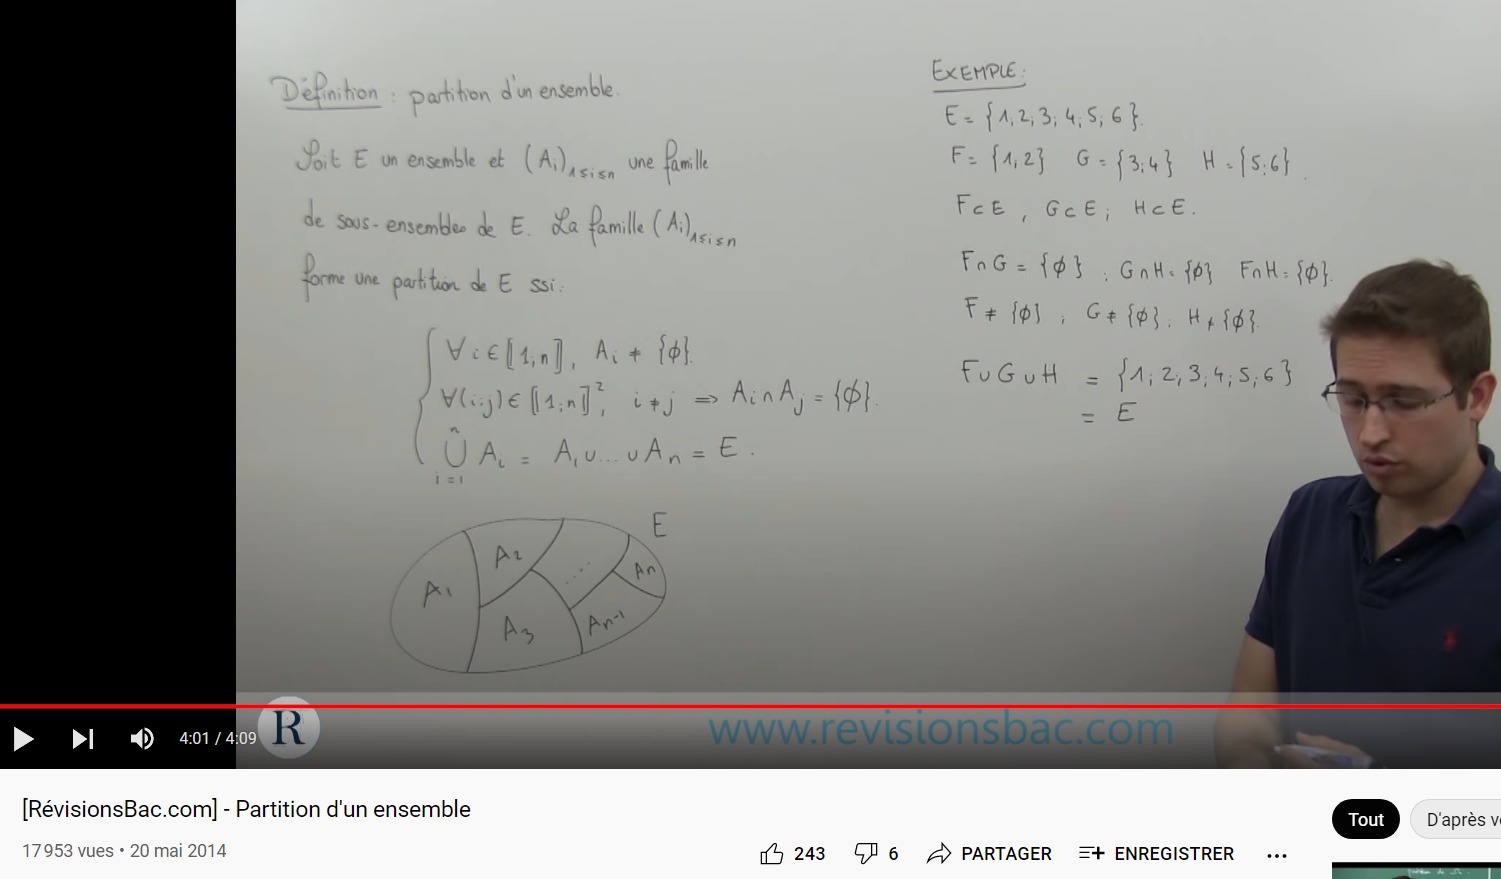 Définition : partition d'un ensemble.
Soit E un ensemble et (Ai)1≤i≤n une famille
de sous-ensembles de E. La famille (Ai)1≤i≤n
forme une partition de E ssi :
∀ i ∈ ⟦1,n⟧, Ai ≠ {∅}.
∀(i;j) ∈ ⟦1;n⟧², i ≠ j ⇒ Ai ∩ Aj = {∅}.
n
∪ Ai = A1 ∪ ... ∪ An = E.
i=1
E
A1 A2 A3 .... An-1 An
EXEMPLE :
E = {1; 2; 3; 4; 5; 6}.
F = {1; 2} G = {3; 4} H = {5; 6}.
F ⊂ E , G ⊂ E ; H ⊂ E.
F ∩ G = {∅} ; G ∩ H = {∅} F ∩ H = {∅}.
F ≠ {∅} ; G ≠ {∅} ; H ≠ {∅}.
F ∪ G ∪ H = {1; 2; 3; 4; 5; 6}
= E
4:01 / 4:09
R
www.revisionsbac.com
[RévisionsBac.com] - Partition d'un ensemble
17 953 vues • 20 mai 2014
243 6 PARTAGER ENREGISTRER ...
Tout D'après